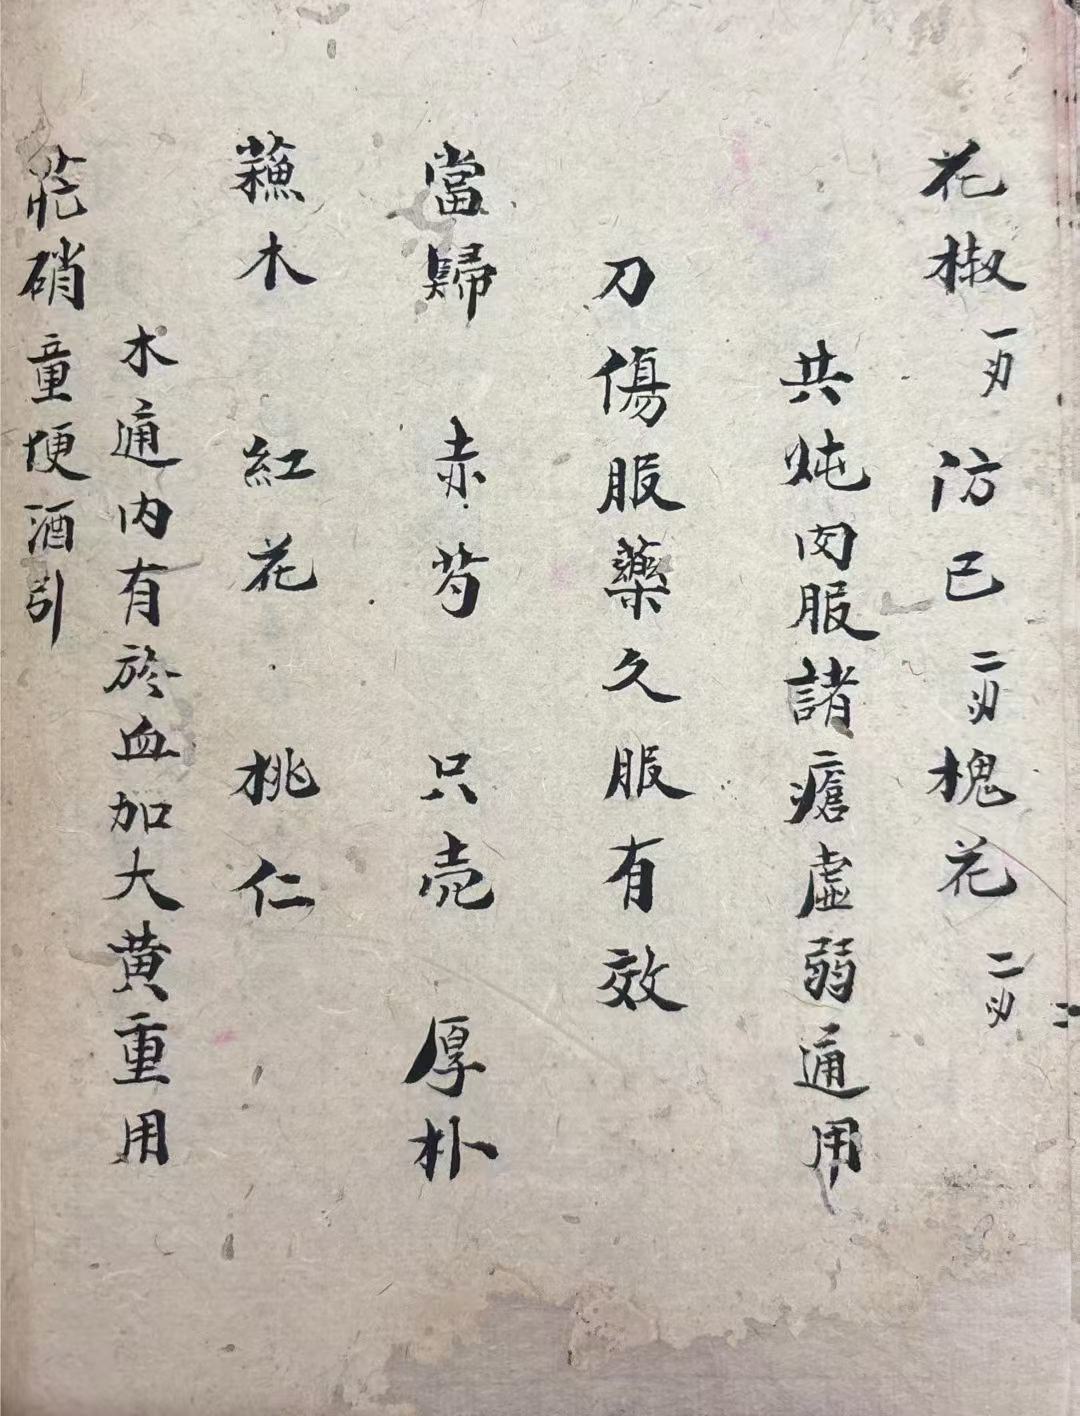 花椒一刄 汸己二刄 槐花二刄
共炖肉服諸瘡虛弱通用
刀傷服藥久服有效
當歸 赤芍 只壳 厚朴
蘓木 紅花 桃仁
木通內有於血加大黄重用
硝童便酒引